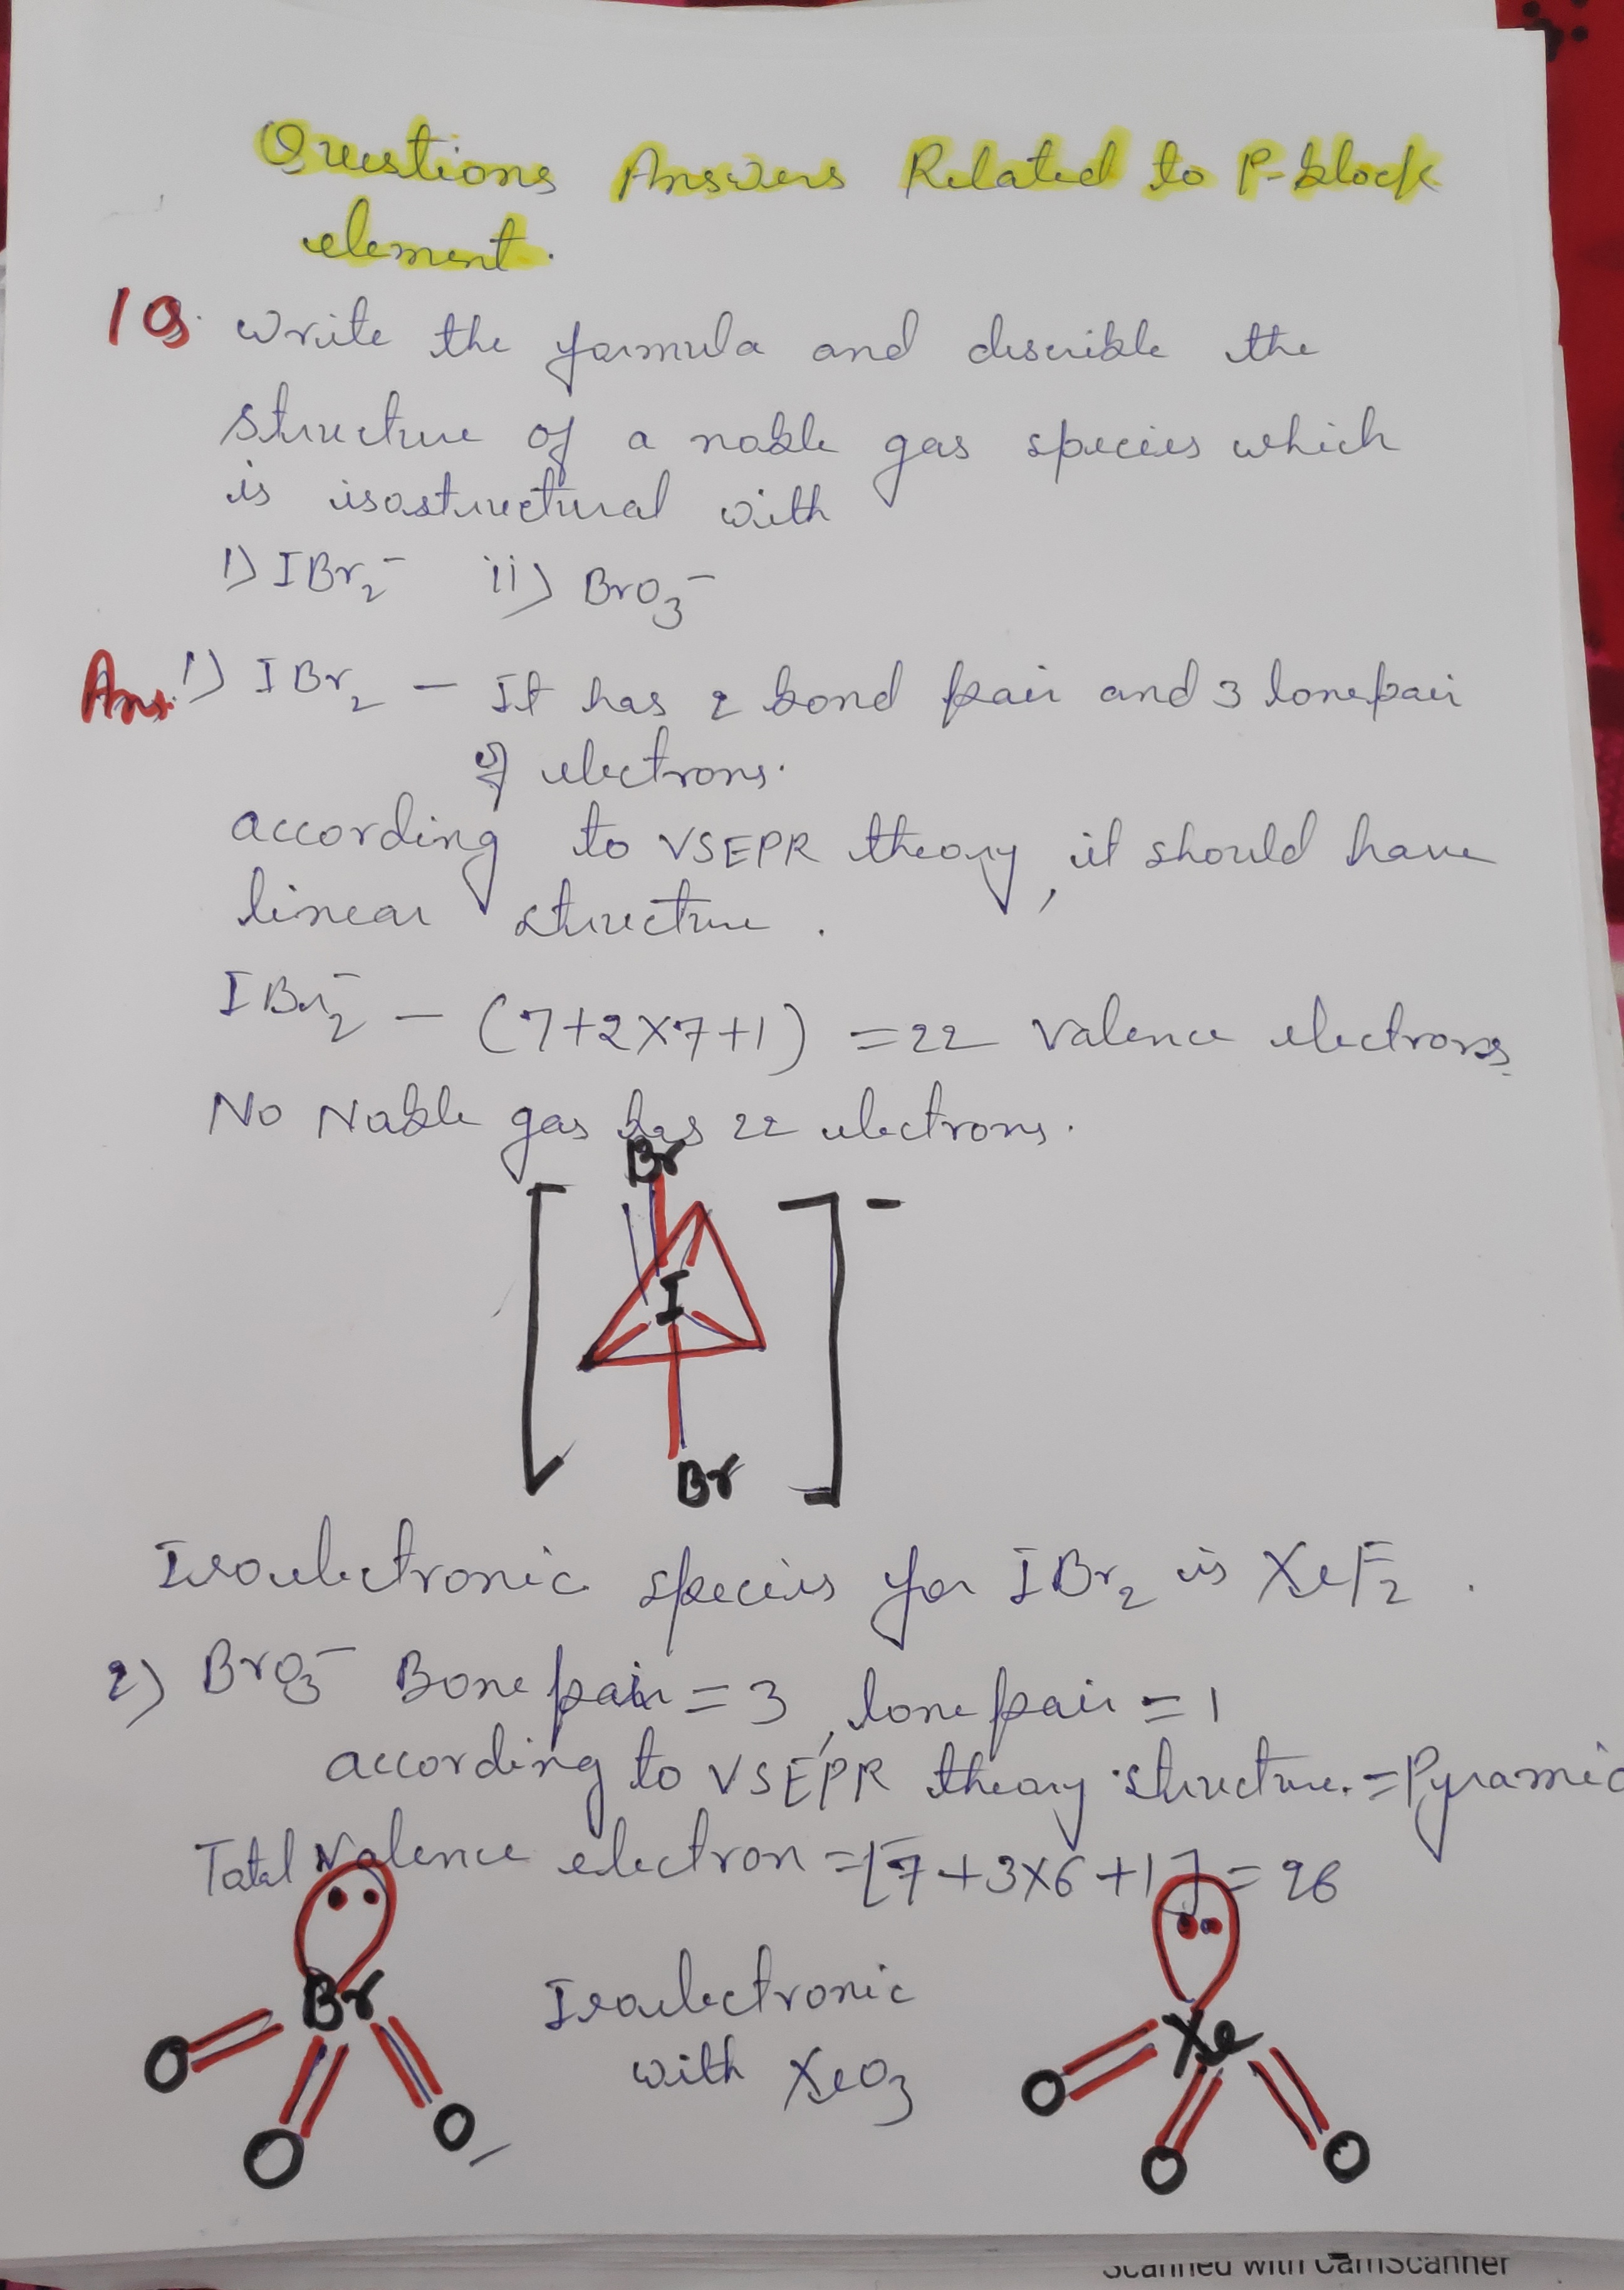 Questions Answers Related to P-block
element.
1Q. Write the formula and describle the
structure of a noble gas species which
is isostructural with
1) IBr₂⁻ ii) BrO₃⁻
Ans. 1) IBr₂ – It has 2 bond pair and 3 lonepair
of electrons.
according to VSEPR theory, it should have
linear structure.
IBr₂⁻ – (7+2×7+1) = 22 valence electrons.
No Noble gas has 22 electrons.
Br
[ I ]⁻
Br
Isoelectronic species for IBr₂ is XeF₂.
2) BrO₃⁻ Bone pair = 3, lone pair = 1
according to VSEPR theory structure. = Pyramid
Total Valence electron = [7+3×6+1] = 26
Br
Isoelectronic
with XeO₃
Xe
O
O
O
O
O
O
Scanned with CamScanner